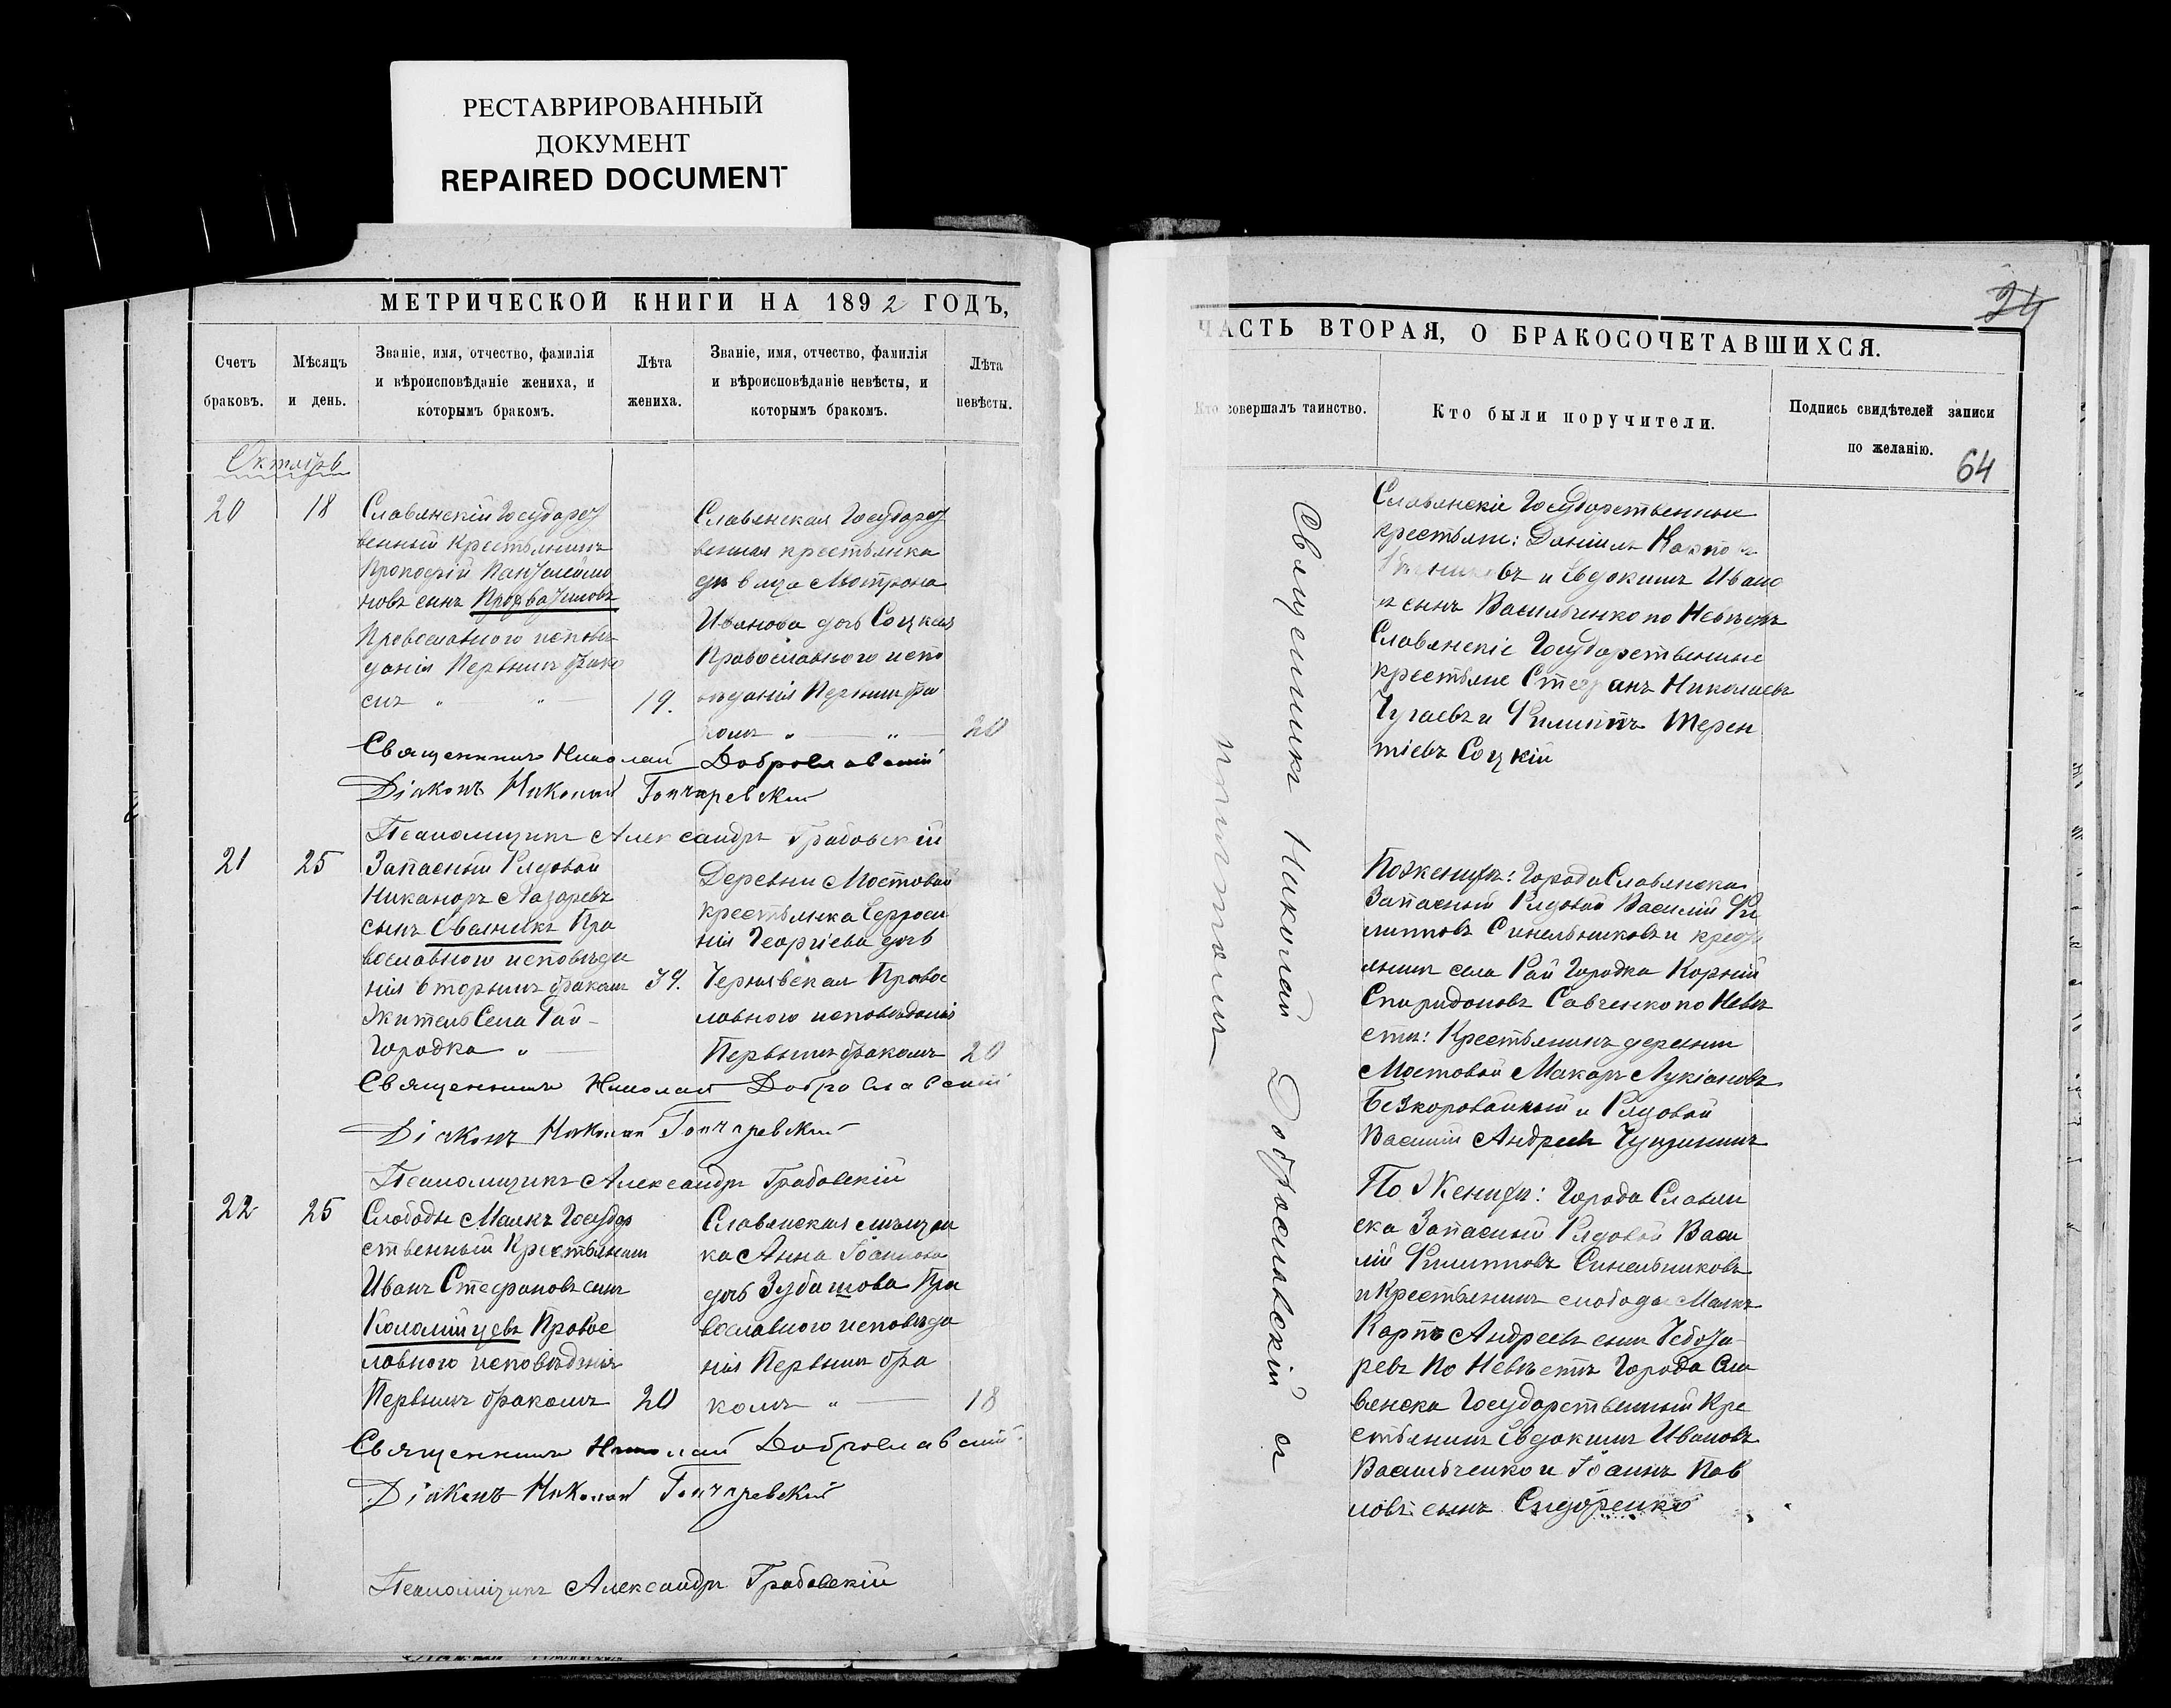 РЕСТАВРИРОВАННЫЙ
ДОКУМЕНТ
REPAIRED DOCUMENT
МЕТРИЧЕСКОЙ КНИГИ НА 1892 ГОДЪ,
Счетъ
браковъ.
Мѣсяцъ
и день.
Званіе, имя, отчество, фамилія
и вѣроисповѣданіе жениха, и
которымъ бракомъ.
Лѣта
жениха.
Званіе, имя, отчество, фамилія
и вѣроисповѣданіе невѣсты, и
которымъ бракомъ.
Лѣта
невѣсты.
Октябрь
20
18
Славянскій Государст
венный Крестьянинъ
Прокофій Пантелеймо
новъ сынъ
Православного исповѣ
данія Первымъ брако
мъ " "
19.
Славянская Государст
венная крестьянка
дѣвица Мотрона
Иванова дочь Соцкая
Православного испо
вѣданія Первымъ бра
комъ " "
20
Священникъ Николай Доброславскій
Діаконъ Николай Гончаревскій
Псаломщикъ Александръ Грабовскій
21
25
Запасный Рядовой
Никаноръ Лазаревъ
сынъ Пра
вославного исповѣда
нія вторымъ бракомъ
Житель Села Рай-
Городка "
39.
Деревни Мостовой
крестьянка Ефроси
нія Георгіева дочь
Чернявская Правос
лавного исповѣданія
Первымъ бракомъ
20
Священникъ Николай Доброславскій
Діаконъ Николай Гончаревскій
Псаломщикъ Александръ Грабовскій
22
25
Слободы Маякъ Государ
ственный Крестьянинъ
Иванъ Стефановъ сынъ
Коломійцевъ Правос
лавного исповѣданія
Первымъ бракомъ
20
Славянская мѣщан
ка Анна Іоаннова
дочь Зубашова Пра
вославного исповѣда
нія Первымъ бра
комъ "
18
Священникъ Николай Доброславскій
Діаконъ Николай Гончаревскій
Псаломщикъ Александръ Грабовскій
24
ЧАСТЬ ВТОРАЯ, О БРАКОСОЧЕТАВШИХСЯ.
Кто совершалъ таинство.
Кто были поручители.
Подпись свидѣтелей записи
по желанію.
64
Священникъ Николай Доброславскій съ
причтомъ
Славянскіе Государственные
крестьяне: Даніилъ Карповъ
и Евдокимъ Ивано
въ сынъ Васильченко по Невѣстѣ
Славянскіе Государственные
крестьяне Стефанъ Николаевъ
Чугаевъ и Филиппъ Терен
тіевъ Соцкій
По женихѣ: Города Славянска
Запасный Рядовой Василій Фи
липповъ Синельниковъ и крест
ьянинъ села Рай Городка Корній
Спиридоновъ Савченко по Невѣ
стѣ: Крестьянинъ деревни
Мостовой Макаръ Лукіановъ
Безкоровайный и Рядовой
Василій Андреевъ
По Женихѣ: Города Славян
ска Запасный Рядовой Васи
лій Филипповъ Синельниковъ
и Крестьянинъ слободы Маякъ
Карпъ Андреевъ сынъ Чебота
ревъ По Невѣстѣ Города Сла
вянска Государственный Кре
стьянинъ Евдокимъ Ивановъ
Васильченко и Іоаннъ Пав
ловъ сынъ Сидоренко